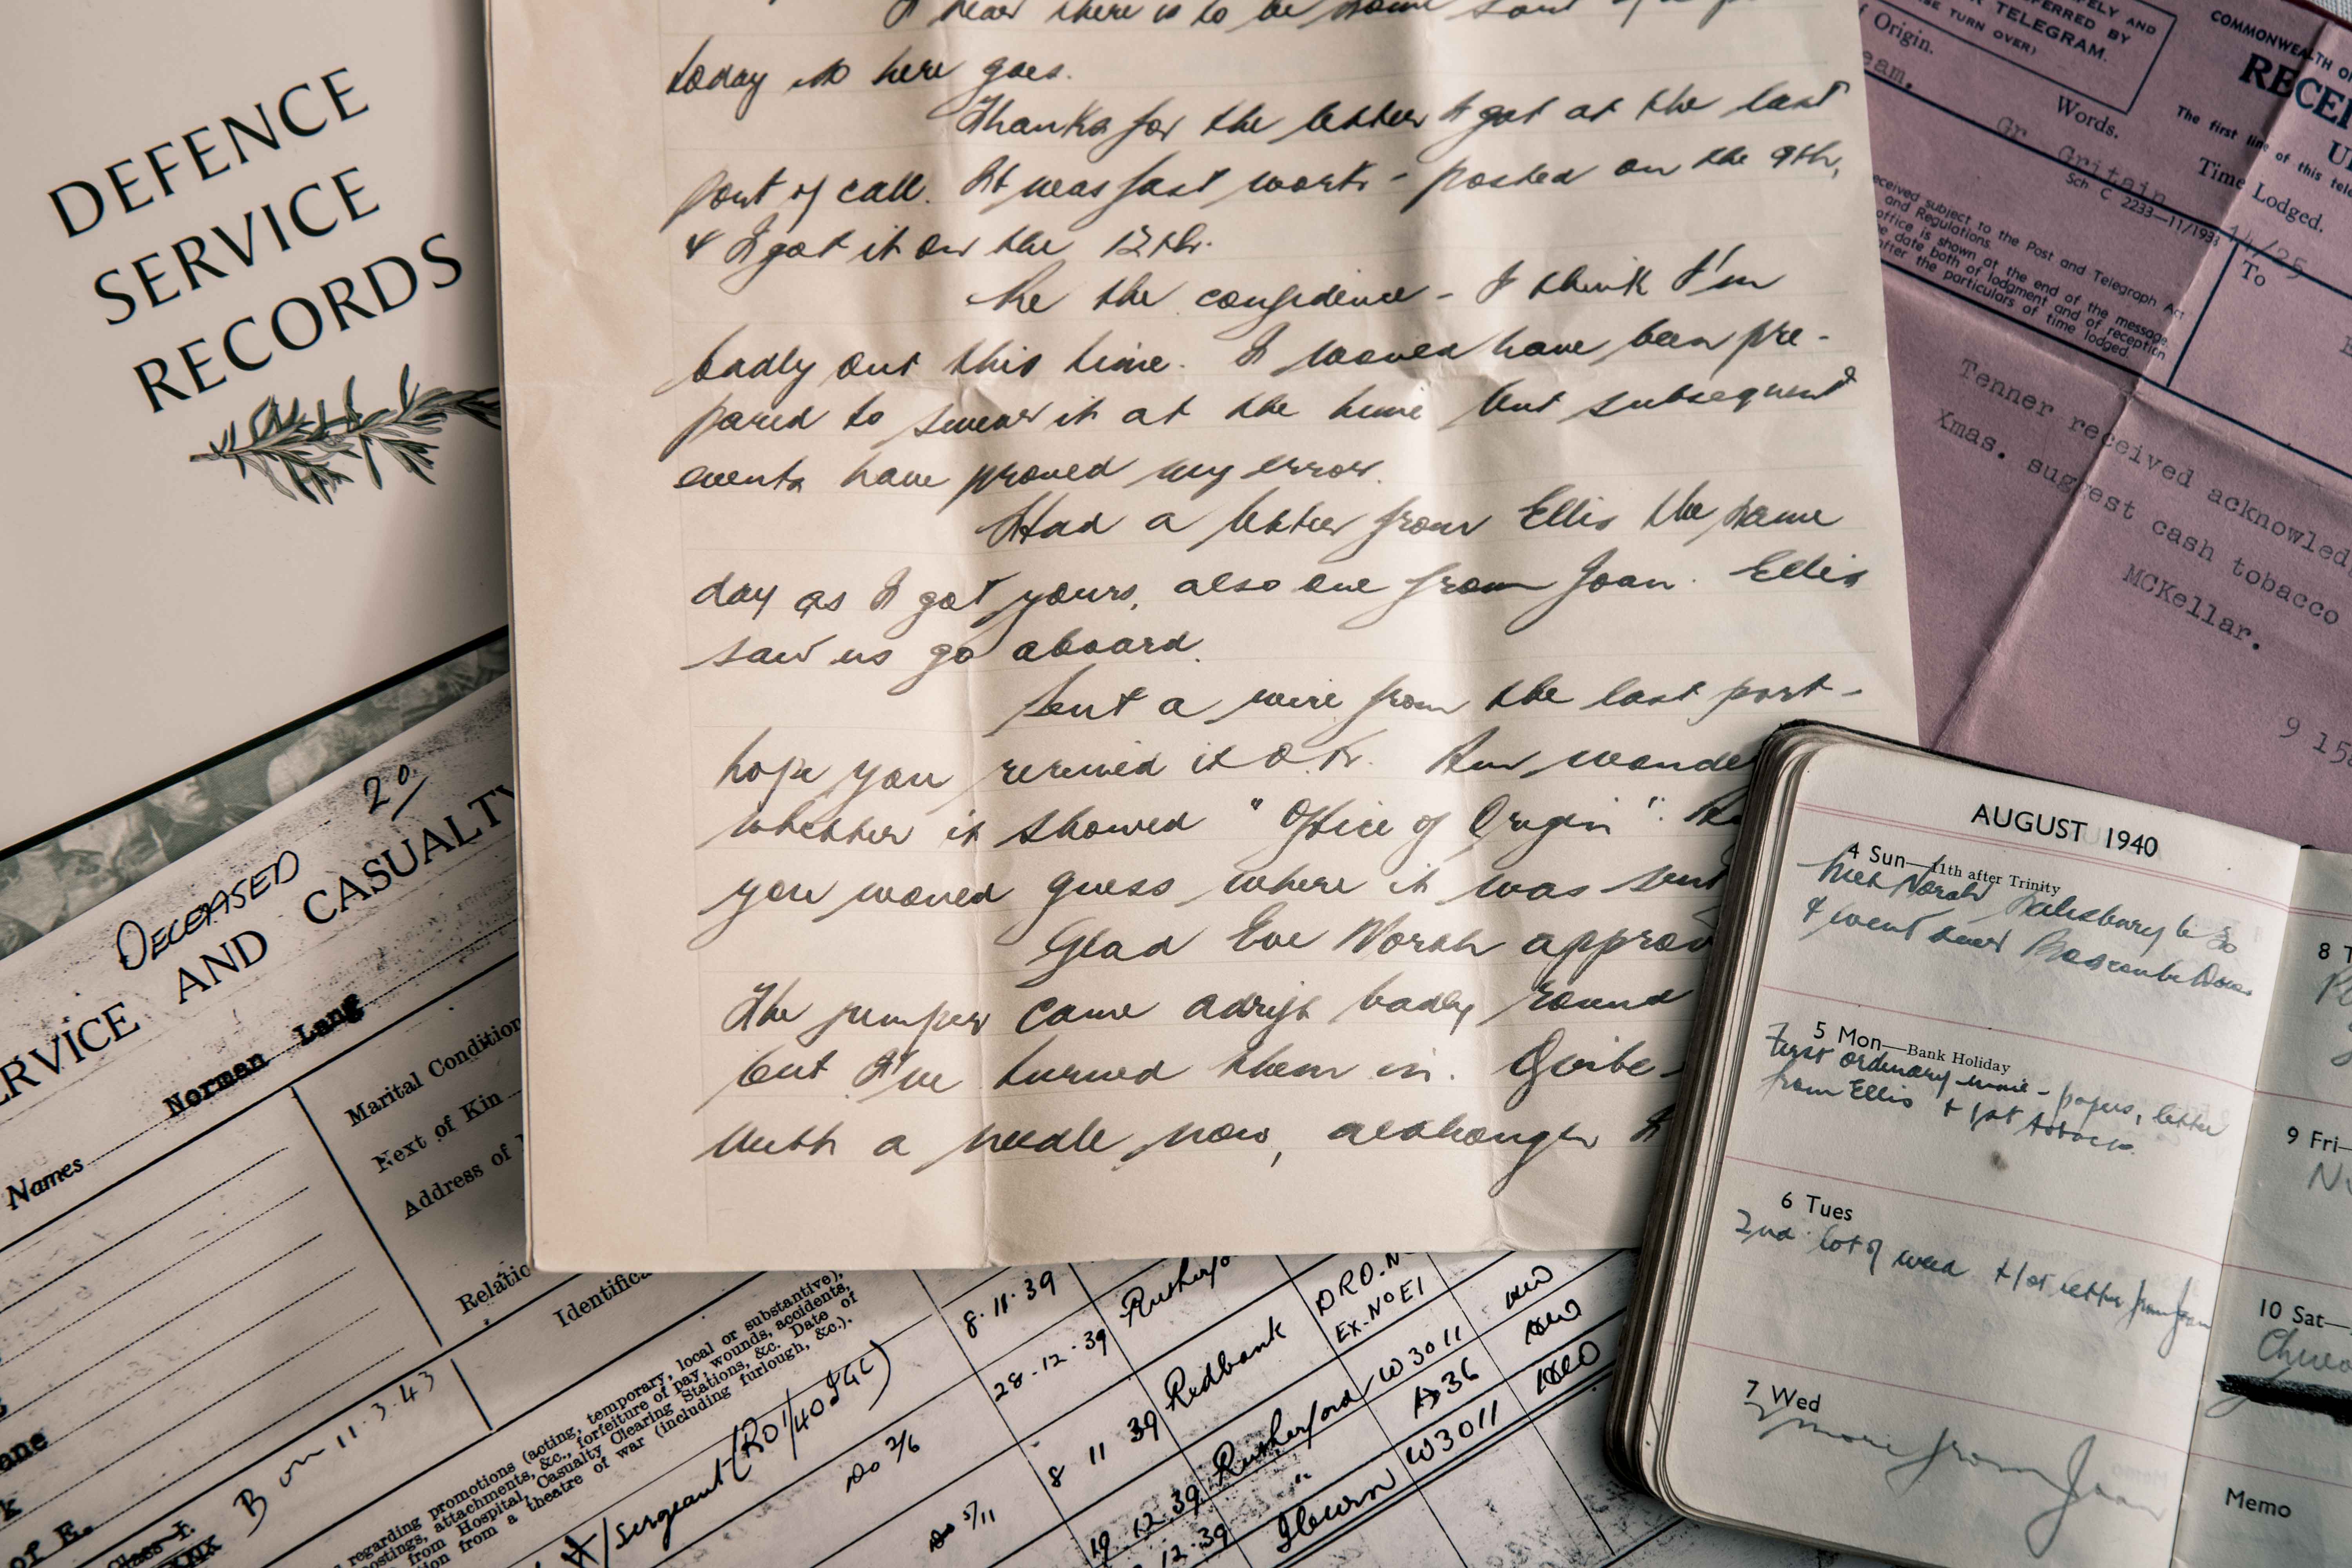 DEFENCE
SERVICE
RECORDS
today so here goes.
Thanks for the letter I got at the last
port of call. It was fast work - posted on the 9th,
& I got it on the 12th.
Re the confidence - I think I'm
badly out this time. I would have been pre-
pared to swear it at the time but subsequent
events have proved my error.
Had a letter from Ellis the same
day as I got yours, also one from Joan. Ellis
saw us go aboard.
Sent a wire from the last port -
hope you received it O.K. Am wonde
whether it showed "Office of Origin".
you would guess where it was sent
Glad Eve Norah approv
The jumper came adrift badly round
but I've turned them in. Quite
with a needle now, although I
ELY AND
FERRED BY
TELEGRAM.
SE TURN OVER)
f Origin.
eam.
Words.
Gr
Gritain
Sch C 2233—11/1938
COMMONWEALTH OF
RECEI
The first line of this tele
Time
Lodged.
14/25
To
eceived subject to the Post and Telegraph Act
and Regulations.
office is shown at the end of the message.
e date both of lodgment and of reception
after the particulars of time lodged.
Tenner received acknowled
Xmas. suggest cash tobacco
MCKellar.
9 15
AUGUST 1940
4 Sun—11th after Trinity
Met Norah Salisbury 6.30
& went over Boscombe Down
5 Mon—Bank Holiday
First ordinary mail - papers, letter
from Ellis & 1st tobacco
6 Tues
2nd lot of weed & 1st letter from Joan
7 Wed
2 more from Joan
8 T
9 Fri—
10 Sat—
Memo
20
DECEASED
ERVICE AND CASUALTY
Norman Lang
Names
Marital Condition
Next of Kin
Address of
Relatio
Identifica
Born 11.3.43
ane
k
OF E.
Class I.
regarding promotions (acting, temporary, local or substantive),
ostings, attachments, &c., forfeiture of pay, wounds, accidents,
from Hospital, Casualty Clearing Stations, &c. Date of
tion from a theatre of war (including furlough, &c.).
A/Sergeant (RO1/40 SGC)
do 2/6
do 5/11
8.11.39
28.12.39
Rutherfo
DRO.N
Ex.No E1
8 11 39
Redbank
19 12 39
Rutherford
W3011
A36
12.39
"
Ilbewn
W3011